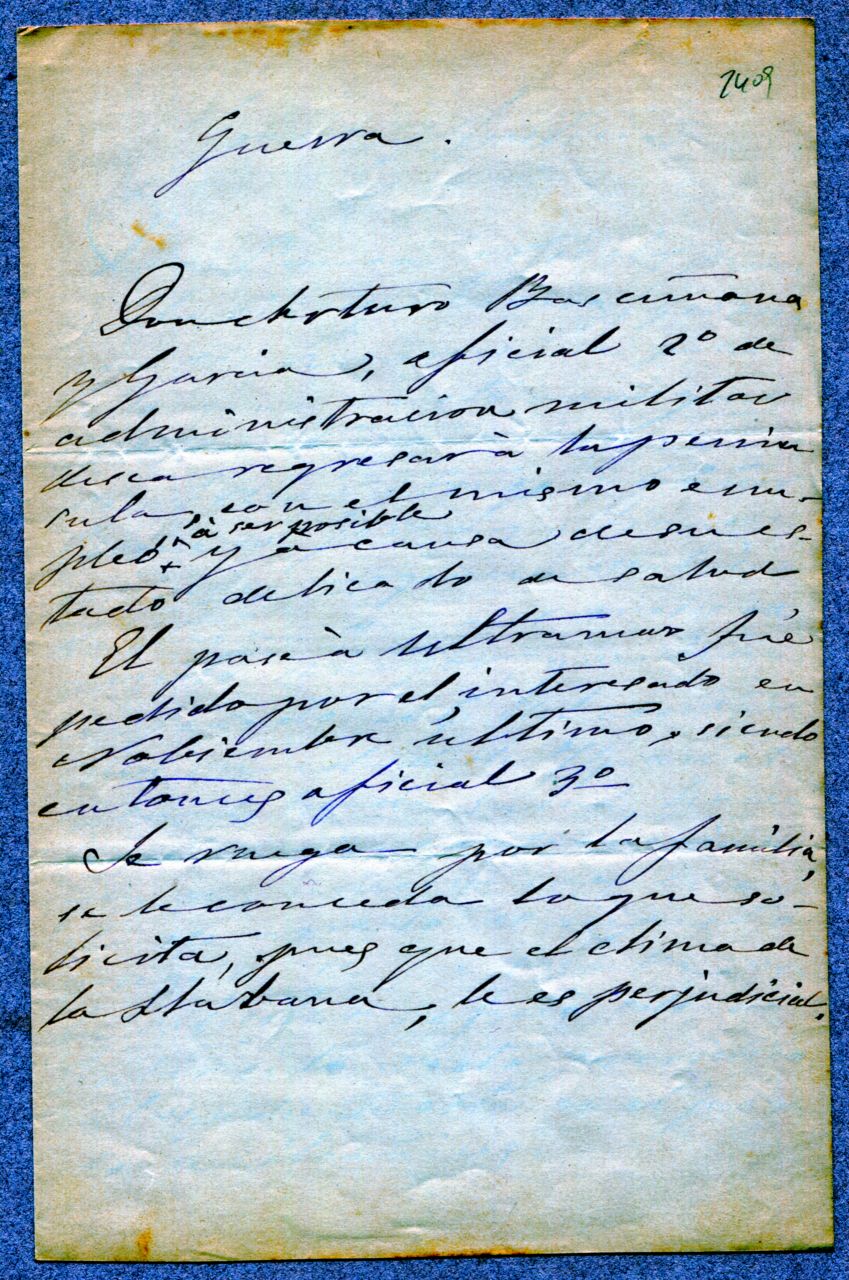 2409
Guerra.
Don Arturo Bascuñana
y Garcia, oficial 2º de
administracion militar
desea regresar à la penin
sula, con el mismo em-
à ser posible
pleo, + y à causa de su es-
tado delicado de salud
El pase à Ultramar fué
pedido por el interesado en
Nobiembre último, siendo
entonces oficial 3º
Se ruega por la família,
se le conceda lo que so-
licita, pues que el clima de
la Habana, le es perjudicial.